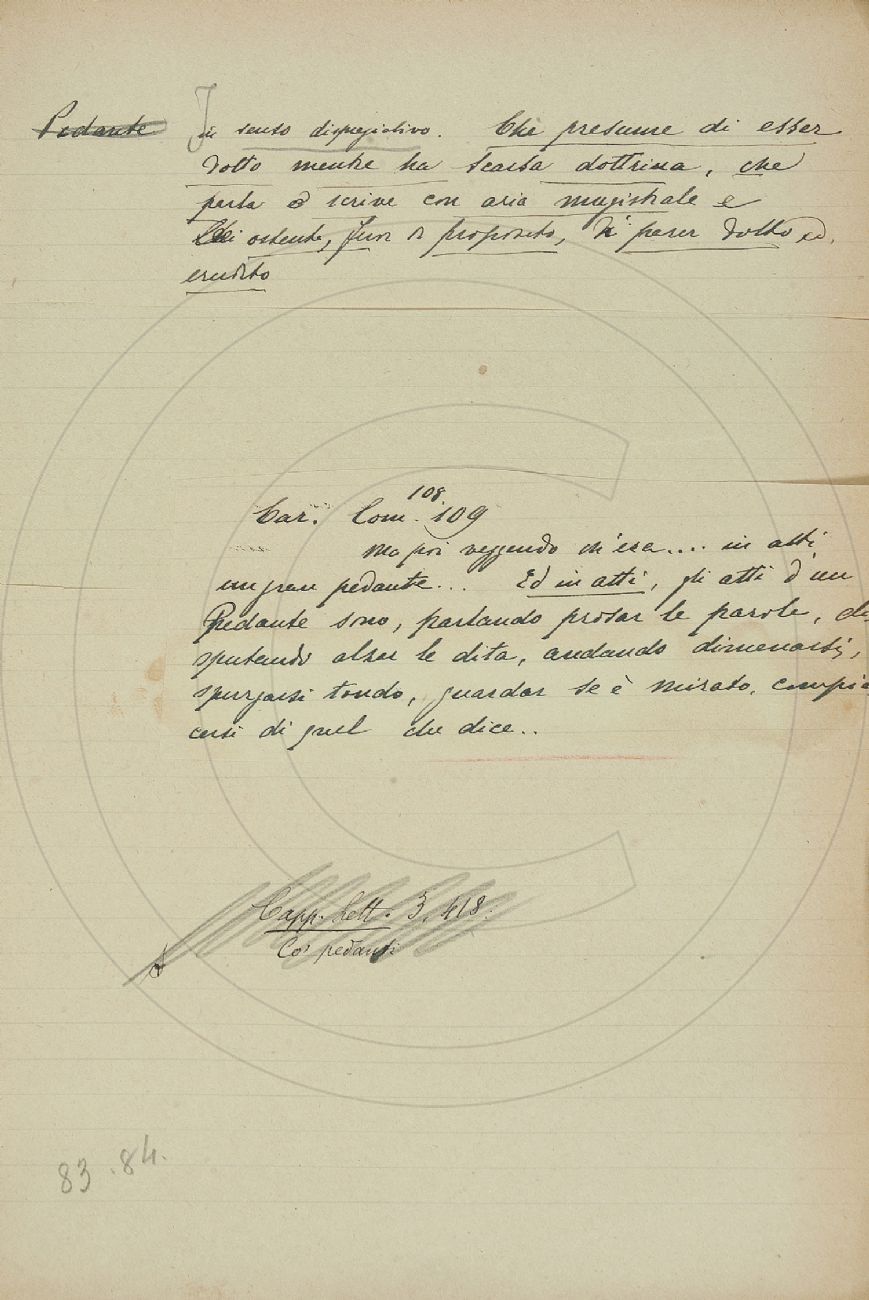 Pedante In senso dispregiativo. Che presume di esser
dotto mentre ha scarsa dottrina, che
parla o scrive con aria magistrale e
ostenta, fuor di proposito, di parer dotto ed
erudito
108
Car. Com. 109
Ma poi veggendo ch'era.... in atti
un gran pedante... Ed in atti, gli atti d'un
Pedante sono, parlando prosar le parole, di
sputando alzar le dita, andando dimenarsi,
spurgarsi tondo, guardar se è mirato, compia
cersi di quel che dice..
Capp. Lett. 3. 418.
Co' pedanti
83.84.